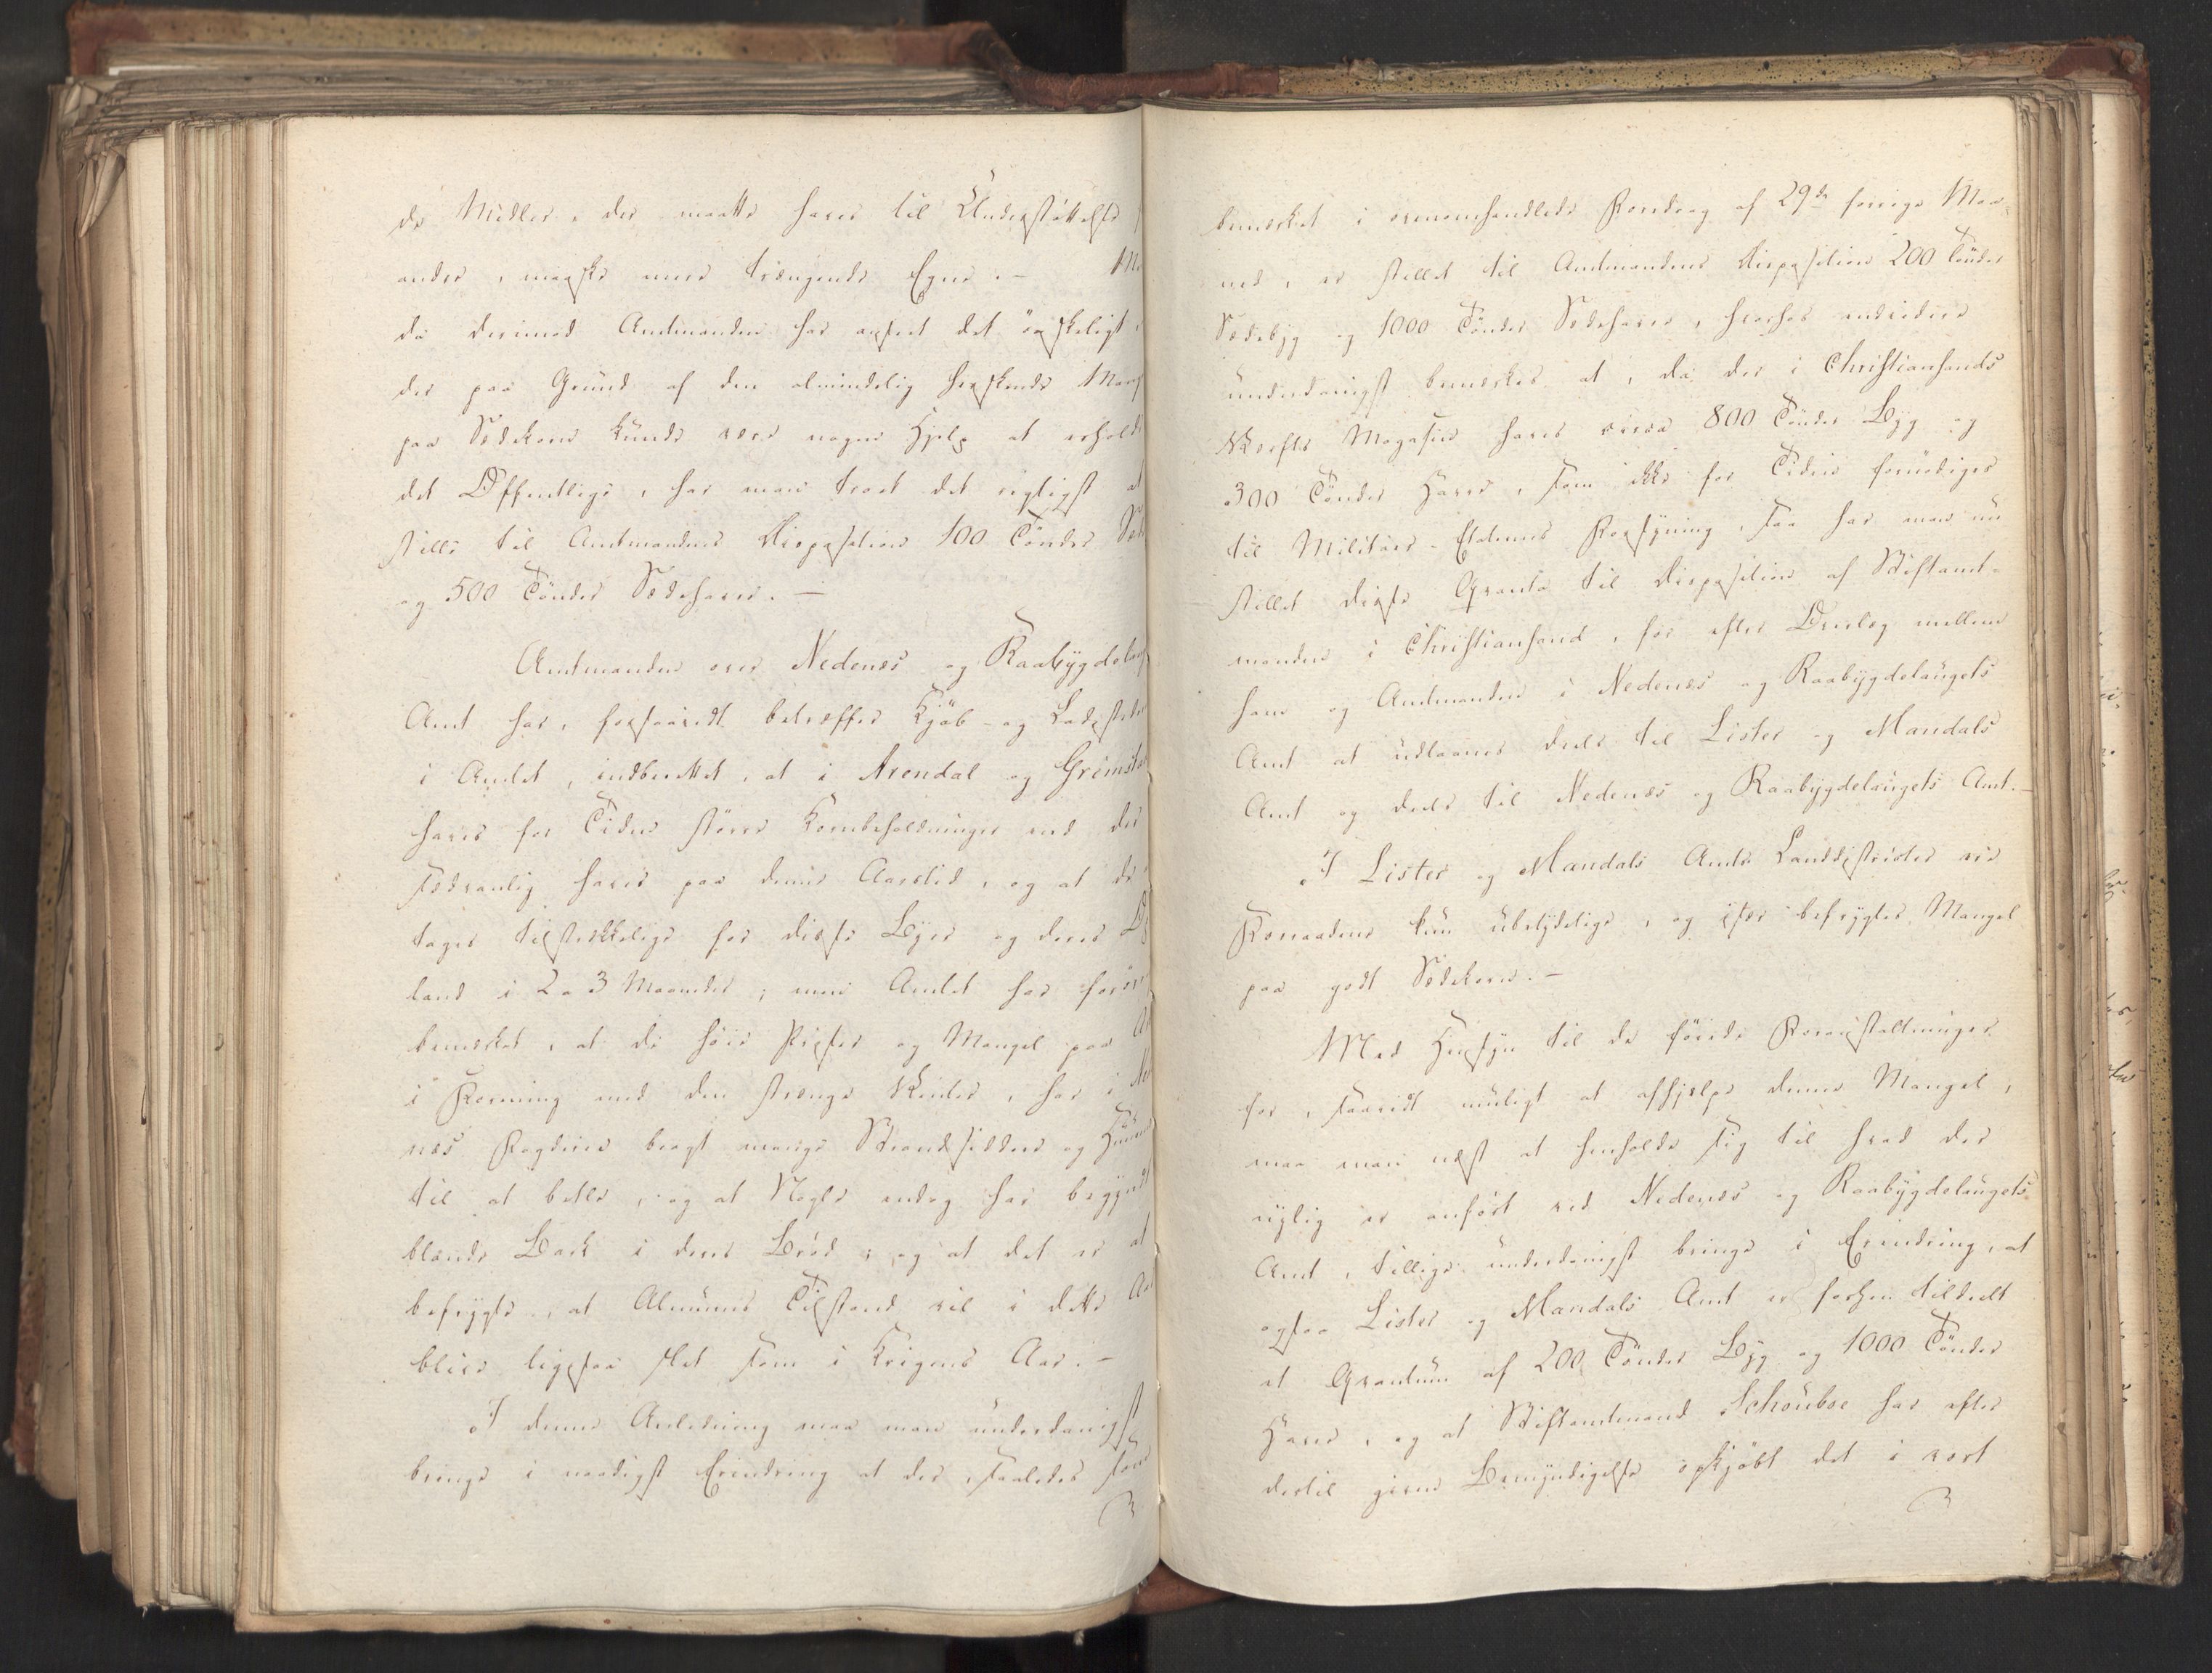 de Midler, der maatte haves til Understøttelse
andre, maaske mere trængende Egne. —
da derimod Amtmanden har anseet det ønskeligt
der paa Grund af den almindelig herskende Mang
paa Sædekorn kunde være nogen Hjelp at erholde
det Offentlige, har man troet det rigtigst at
stille til Amtmandens Disposition 100 Tønder
og 500 Tønder Sædehavre. —
Amtmanden over Nedenes og Raabygdelaug
Amt har, forsaavidt betræffer Kjøb- og Ladestede
i Amtet, indberettet, at i Arendal og Grimsta
haves for Tiden større Kornbeholdninger end der
sædvanlig haves paa denne Aarstid, og at de
tages tilstrækkelige for disse Byer og deres
land i 2 a 3 Maaneder; men Amtet har
bemærket, at de høie Priser og Mangel paa
i Forening med den strænge Vinter, har i
næs Fogderie bragt mange Strandsiddere og
til at betle, og at Nogle endog har begyndt
blande Bark i deres Brød; og at det er at
befrygte, at Almuens Tilstand vil i dette
blive ligesaa slet som i Krigens Aar. —
I denne Anledning maa man underdanigst
bringe i naadigst Erindring at der, saaledes som
bemærket i ovenomhandlede Foredrag af 29de forrige Maa-
ned, er stillet til Amtmandens Disposition 200 Tønder
Sædebyg og 1000 Tønder Sædehavre, hvorhos endvidere
underdanigst bemærkes at, da der i Christiansands
Værfts Magasin haves circa 800 Tønder Byg og
300 Tønder Havre, som ikke for Tiden fornødiges
til Militær-Etatens Forsyning, saa har man nu
stillet disse Qvanta til Disposition af Stiftamt-
manden i Christiansand, for efter Overlæg mellem
ham og Amtmanden i Nedenes og Raabygdelaugets
Amt at udlaanes deels til Lister og Mandals
Amt og deels til Nedenes og Raabygdelaugets Amt. —
I Lister og Mandals Amts Landdistricter ere
Forraadene kun ubetydelige, og især befrygtes Mangel
paa godt Sædekorn. —
Med Hensyn til de førende Foranstaltninger
for, saavidt muligt at afhjelpe denne Mangel,
maa man næst at henholde sig til hvad der
nylig er anført ved Nedenes og Raabygdelaugets
Amt, tillige underdanigst bringe i Erindring, at
ogsaa Lister og Mandals Amt er forhen tildeelt
et Qvantum af 200 Tønder Byg og 1000 Tønder
Havre, og at Stiftamtmand Schouboe har efter
dertil given Bemyndigelse opkjøbt det i vort